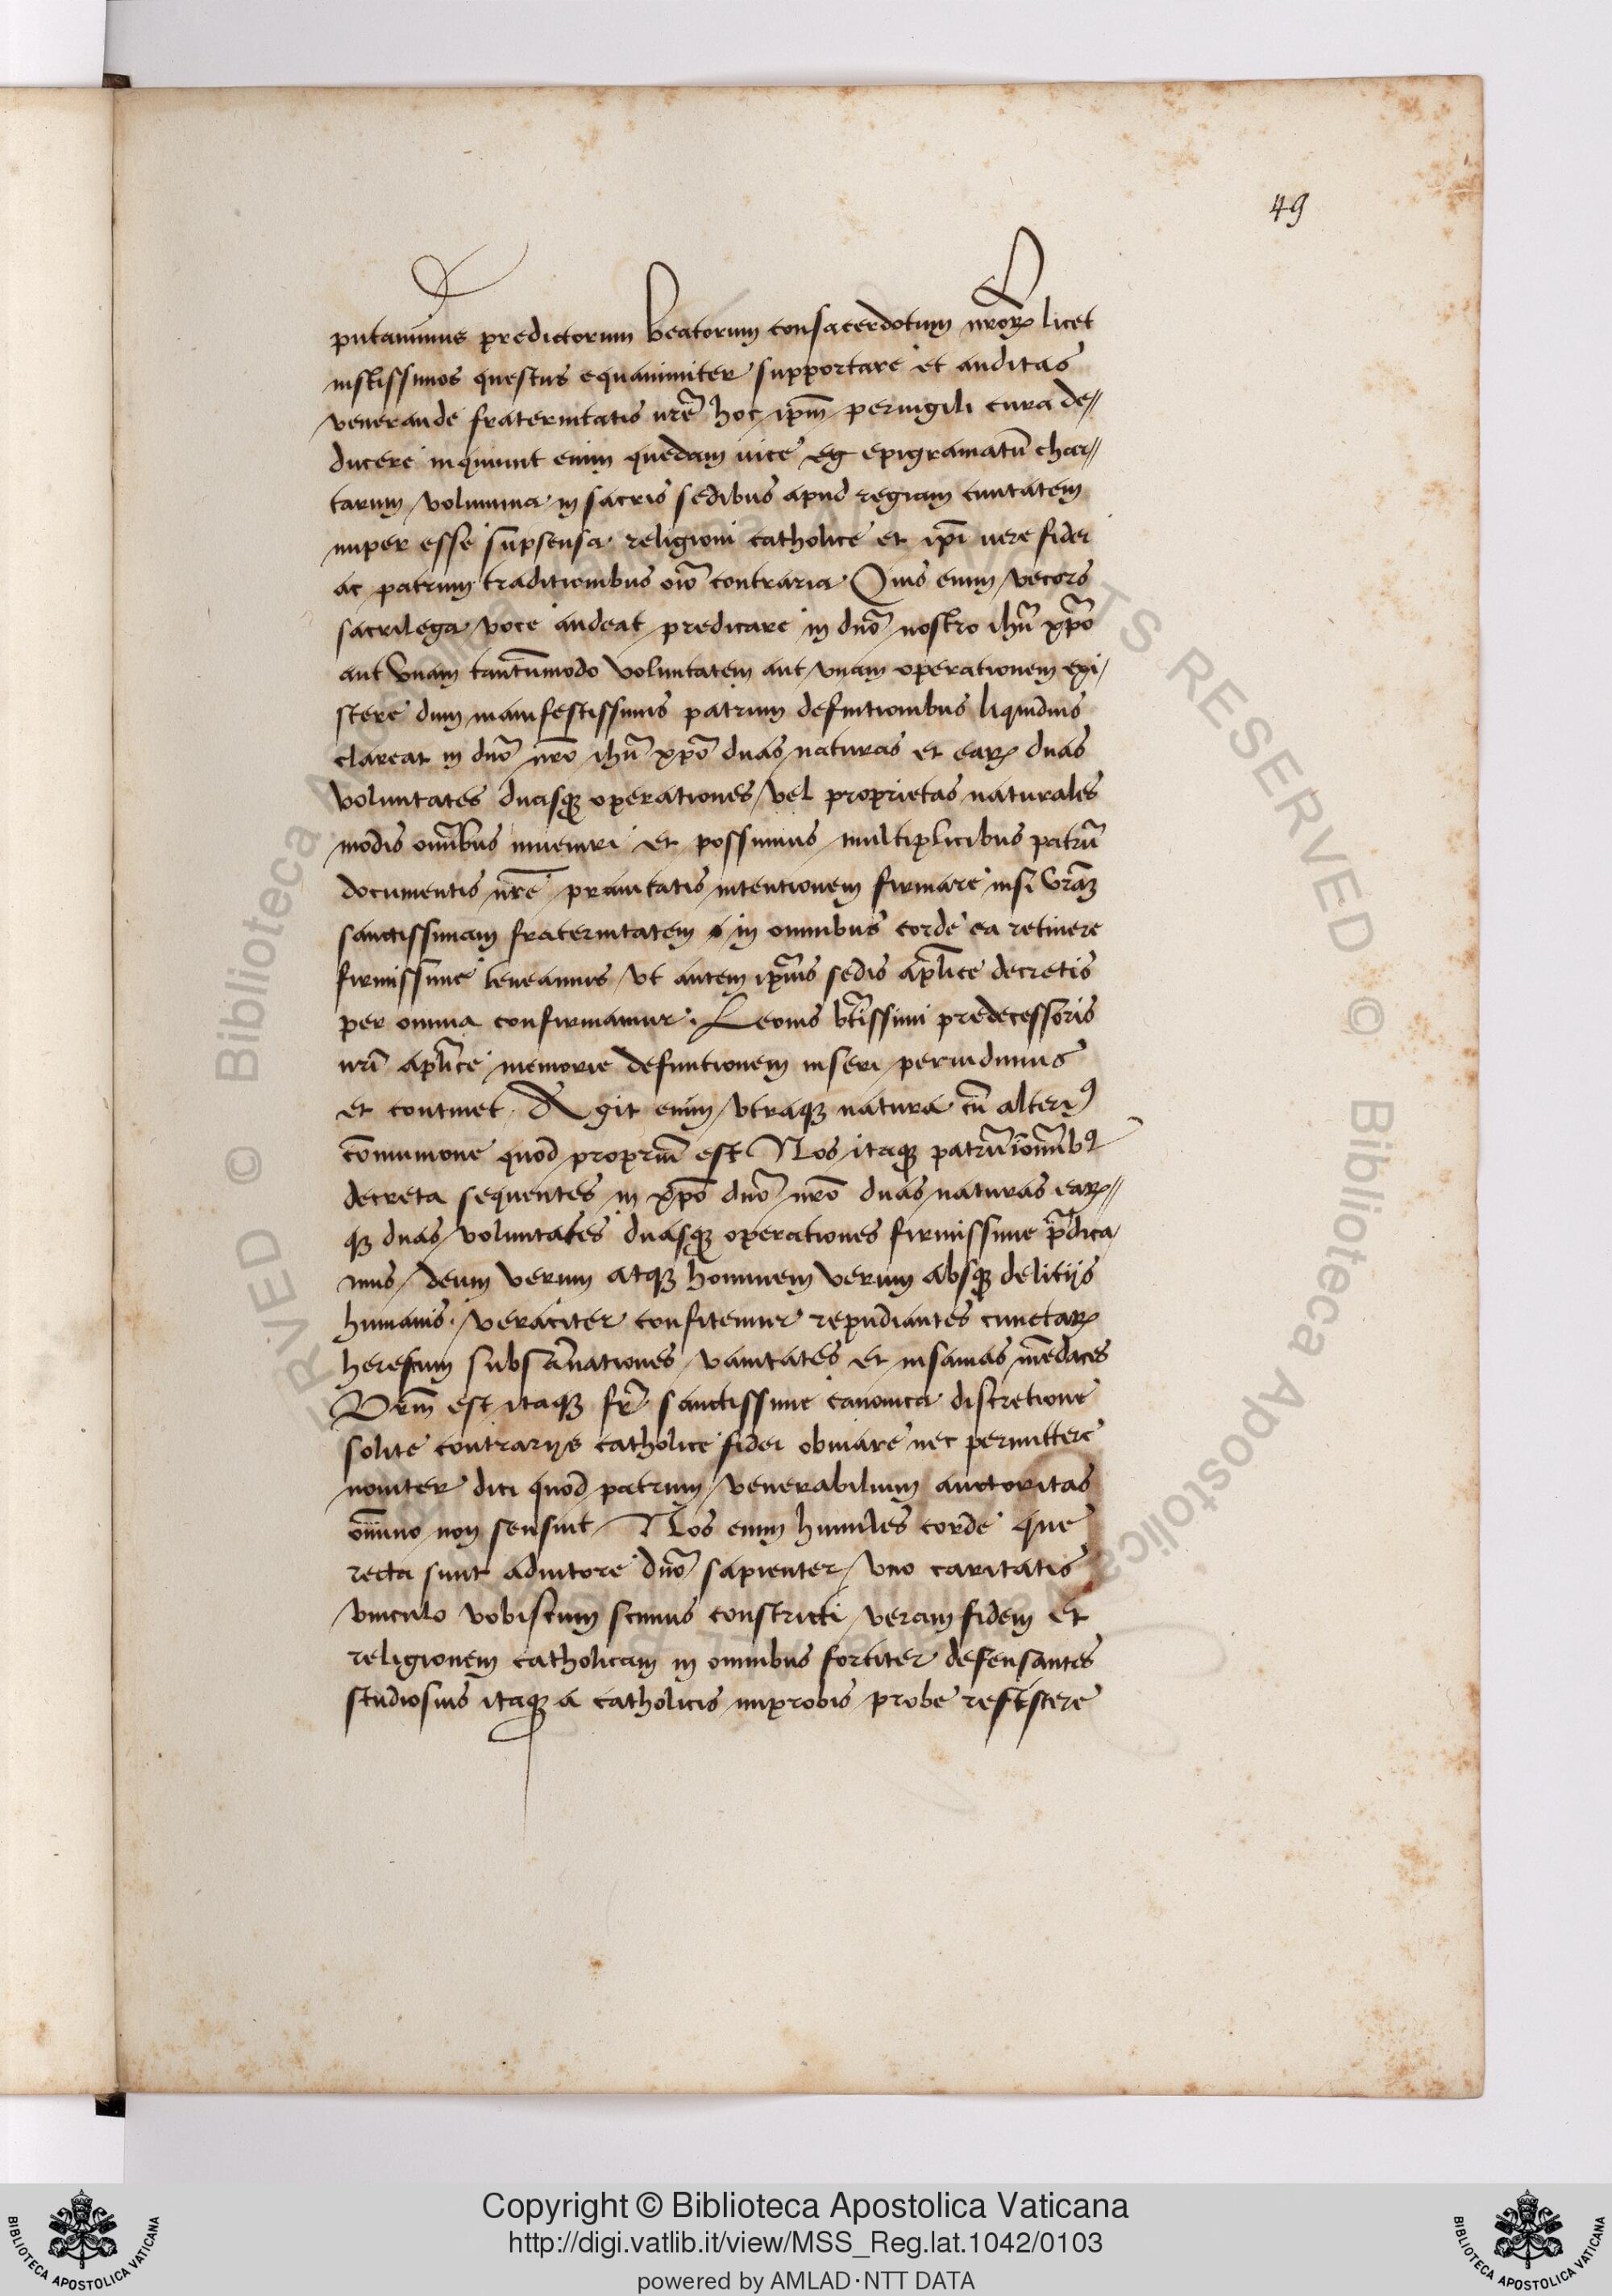 49
putauimus predictorum beatorum consacerdotum nr̃oꝝ licet
iustissimos questus equanimiter supportare et auditas
venerande fraternitatis ur̃e hoc ip̃m peruigili cura de//
ducere inquiunt enim quedam uice eg epigramatũ char//
tarum volumina in sacris sedibus apud regiam ciuitatem
nuper esse suspensa religioni catholice et ip̃i uere fidei
ac patrum traditionibus oĩo contraria Quis enim vecors
sacrilega voce audeat predicare in dño nostro ihũ xp̃o
aut vnam tantũmodo voluntatem aut vnam operationem exi/
stere dum manifestissimis patrum definitionibus liquidius
clareat in dño nr̃o ihũ xp̃o duas naturas et eaꝝ duas
voluntates duasqꝫ operationes vel proprietas naturales
modis om̃ibus inueniri et possumus multiplicibus patrũ
documentis nr̃e prauitatis intentionem firmare nisi vr̃aꝫ
sanctissimam fraternitatem in omnibus corde ea retinere
firmissime teneamus vt autem ip̃ius sedis ap̃lice decretis
per omnia confirmamur. Leonis bt̃issimi predecessoris
nr̃i ap̃lice memorie definitionem inseri peruidimus
et continet. Agit enim vtraqꝫ natura cũ alteriꝰ
cõmunione quod propriũ est Nos itaqꝫ patrũ ĩ om̃ibꝰ
decreta sequentes in xp̃o dño nr̃o duas naturas eaꝝ//
qꝫ duas voluntates duasqꝫ operationes firmissime p̃dica/
mus deum verum atqꝫ hominem verum absqꝫ delitijs
humanis. veraciter confitemur repudiantes cunctaꝝ
heresum subsãnationes vanitates et insanias mẽdaces
Vr̃m est itaqꝫ fr̃. sanctissime canonica discretione
solite contrarijs catholice fidei obuiare nec permittere
nouiter dici quod patrum venerabilium auctoritas
om̃ino non sensuit Nos enim humiles corde que
recta sunt adiutore dño sapienter vno caritatis
vinculo vobiscum simus constricti veram fidem et
religionem catholicam in omnibus fortiter defensantes
studiosius itaqꝫ a catholicis improbis probe resistere
© Biblioteca Apostolica Vaticana
RIGHTS RESERVED
Copyright © Biblioteca Apostolica Vaticana
http://digi.vatlib.it/view/MSS_Reg.lat.1042/0103
powered by AMLAD·NTT DATA
BIBLIOTECA APOSTOLICA VATICANA
BIBLIOTECA APOSTOLICA VATICANA